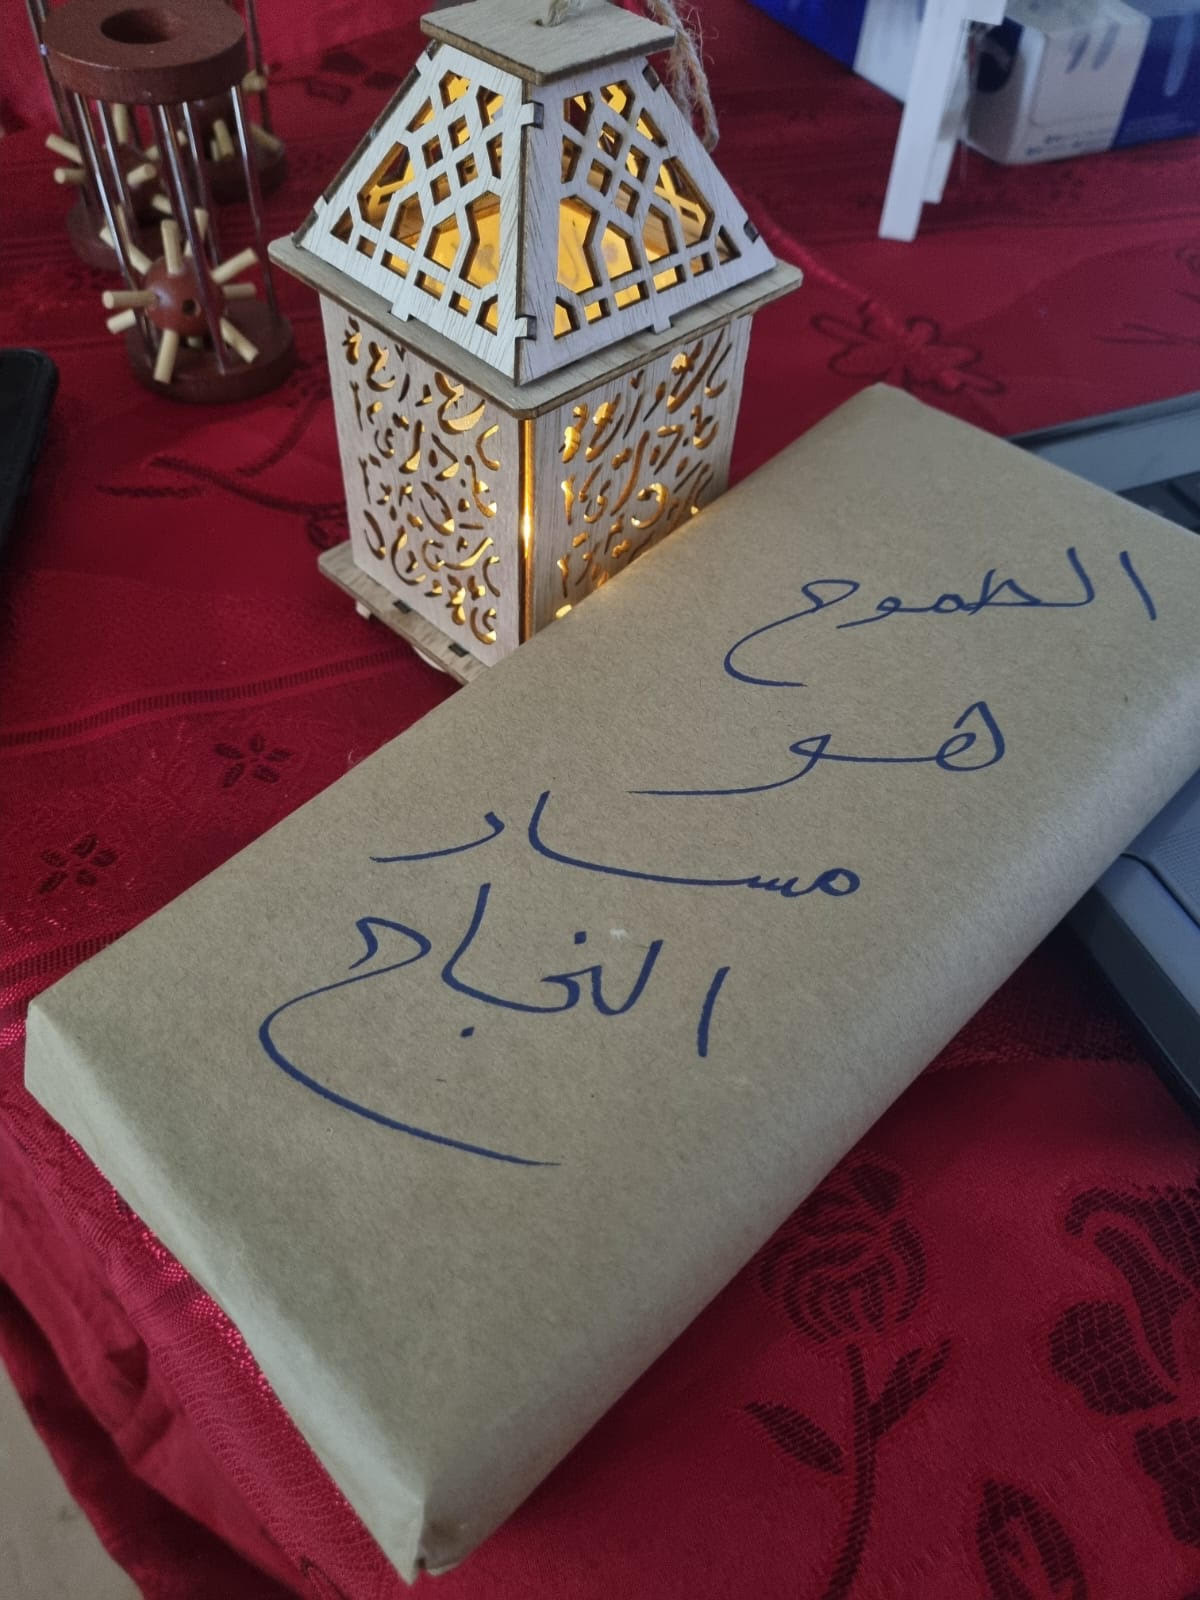 الطموح
هو
مسار
النجاح